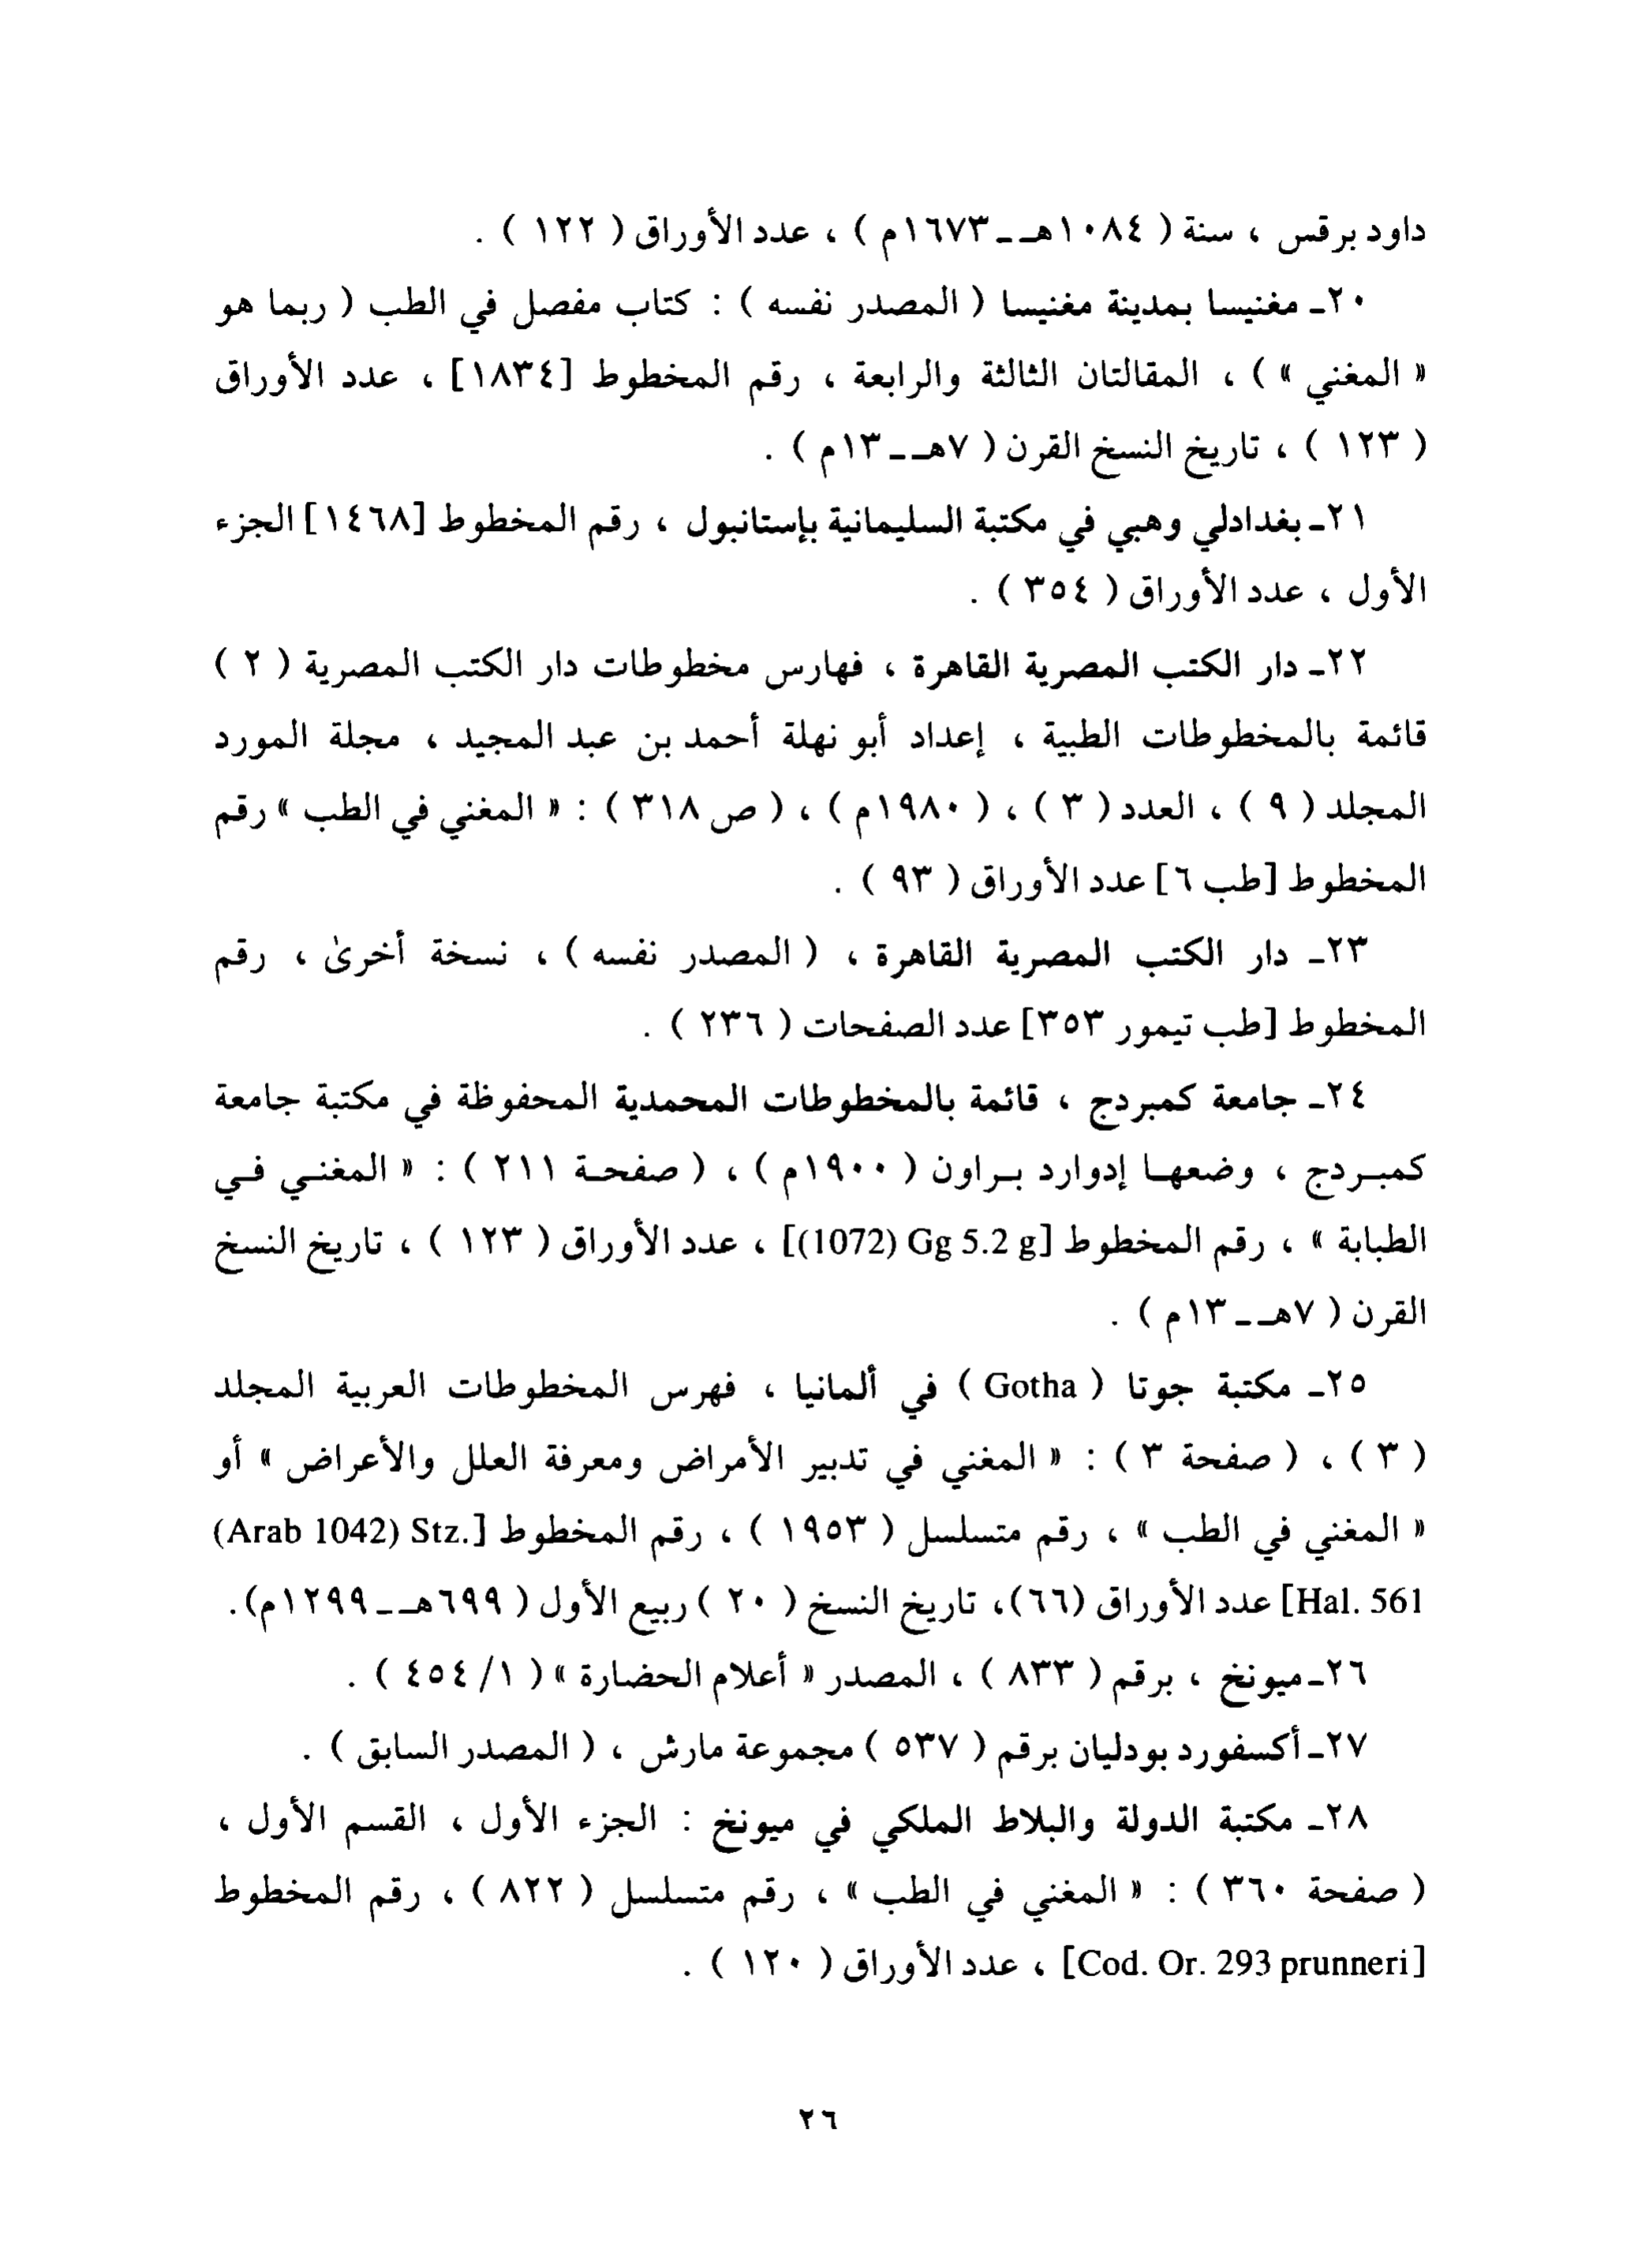 داود برقس ، سنة ( ١٠٨٤هـ ـ ١٦٧٣م ) ، عدد الأوراق ( ١٢٢ ) .
٢٠ـ مغنيسا بمدينة مغنيسا ( المصدر نفسه ) : كتاب مفصل في الطب ( ربما هو
« المغني » ) ، المقالتان الثالثة والرابعة ، رقم المخطوط [١٨٣٤] ، عدد الأوراق
( ١٢٣ ) ، تاريخ النسخ القرن ( ٧هـ ـ ١٣م ) .
٢١ـ بغدادلي وهبي في مكتبة السليمانية بإستانبول ، رقم المخطوط [١٤٦٨] الجزء
الأول ، عدد الأوراق ( ٣٥٤ ) .
٢٢ـ دار الكتب المصرية القاهرة ، فهارس مخطوطات دار الكتب المصرية ( ٢ )
قائمة بالمخطوطات الطبية ، إعداد أبو نهلة أحمد بن عبد المجيد ، مجلة المورد
المجلد ( ٩ ) ، العدد ( ٣ ) ، ( ١٩٨٠م ) ، ( ص ٣١٨ ) : « المغني في الطب » رقم
المخطوط [طب ٦] عدد الأوراق ( ٩٣ ) .
٢٣ـ دار الكتب المصرية القاهرة ، ( المصدر نفسه ) ، نسخة أخرىٰ ، رقم
المخطوط [طب تيمور ٣٥٣] عدد الصفحات ( ٢٣٦ ) .
٢٤ـ جامعة كمبردج ، قائمة بالمخطوطات المحمدية المحفوظة في مكتبة جامعة
كمبـردج ، وضعهـا إدوارد بـراون ( ١٩٠٠م ) ، ( صفحـة ٢١١ ) : « المغنـي فـي
الطبابة » ، رقم المخطوط [(1072) Gg 5.2 g)] ، عدد الأوراق ( ١٢٣ ) ، تاريخ النسخ
القرن ( ٧هـ ـ ١٣م ) .
٢٥ـ مكتبة جوتا ( Gotha ) في ألمانيا ، فهرس المخطوطات العربية المجلد
( ٣ ) ، ( صفحة ٣ ) : « المغني في تدبير الأمراض ومعرفة العلل والأعراض » أو
« المغني في الطب » ، رقم متسلسل ( ١٩٥٣ ) ، رقم المخطوط [.Arab 1042) Stz)
Hal. 561] عدد الأوراق (٦٦)، تاريخ النسخ ( ٢٠ ) ربيع الأول ( ٦٩٩هـ ـ ١٢٩٩م).
٢٦ـ ميونخ ، برقم ( ٨٣٣ ) ، المصدر « أعلام الحضارة » ( ١/ ٤٥٤ ) .
٢٧ـ أكسفورد بودليان برقم ( ٥٣٧ ) مجموعة مارش ، ( المصدر السابق ) .
٢٨ـ مكتبة الدولة والبلاط الملكي في ميونخ : الجزء الأول ، القسم الأول ،
( صفحة ٣٦٠ ) : « المغني في الطب » ، رقم متسلسل ( ٨٢٢ ) ، رقم المخطوط
[Cod. Or. 293 prunneri] ، عدد الأوراق ( ١٢٠ ) .
٢٦